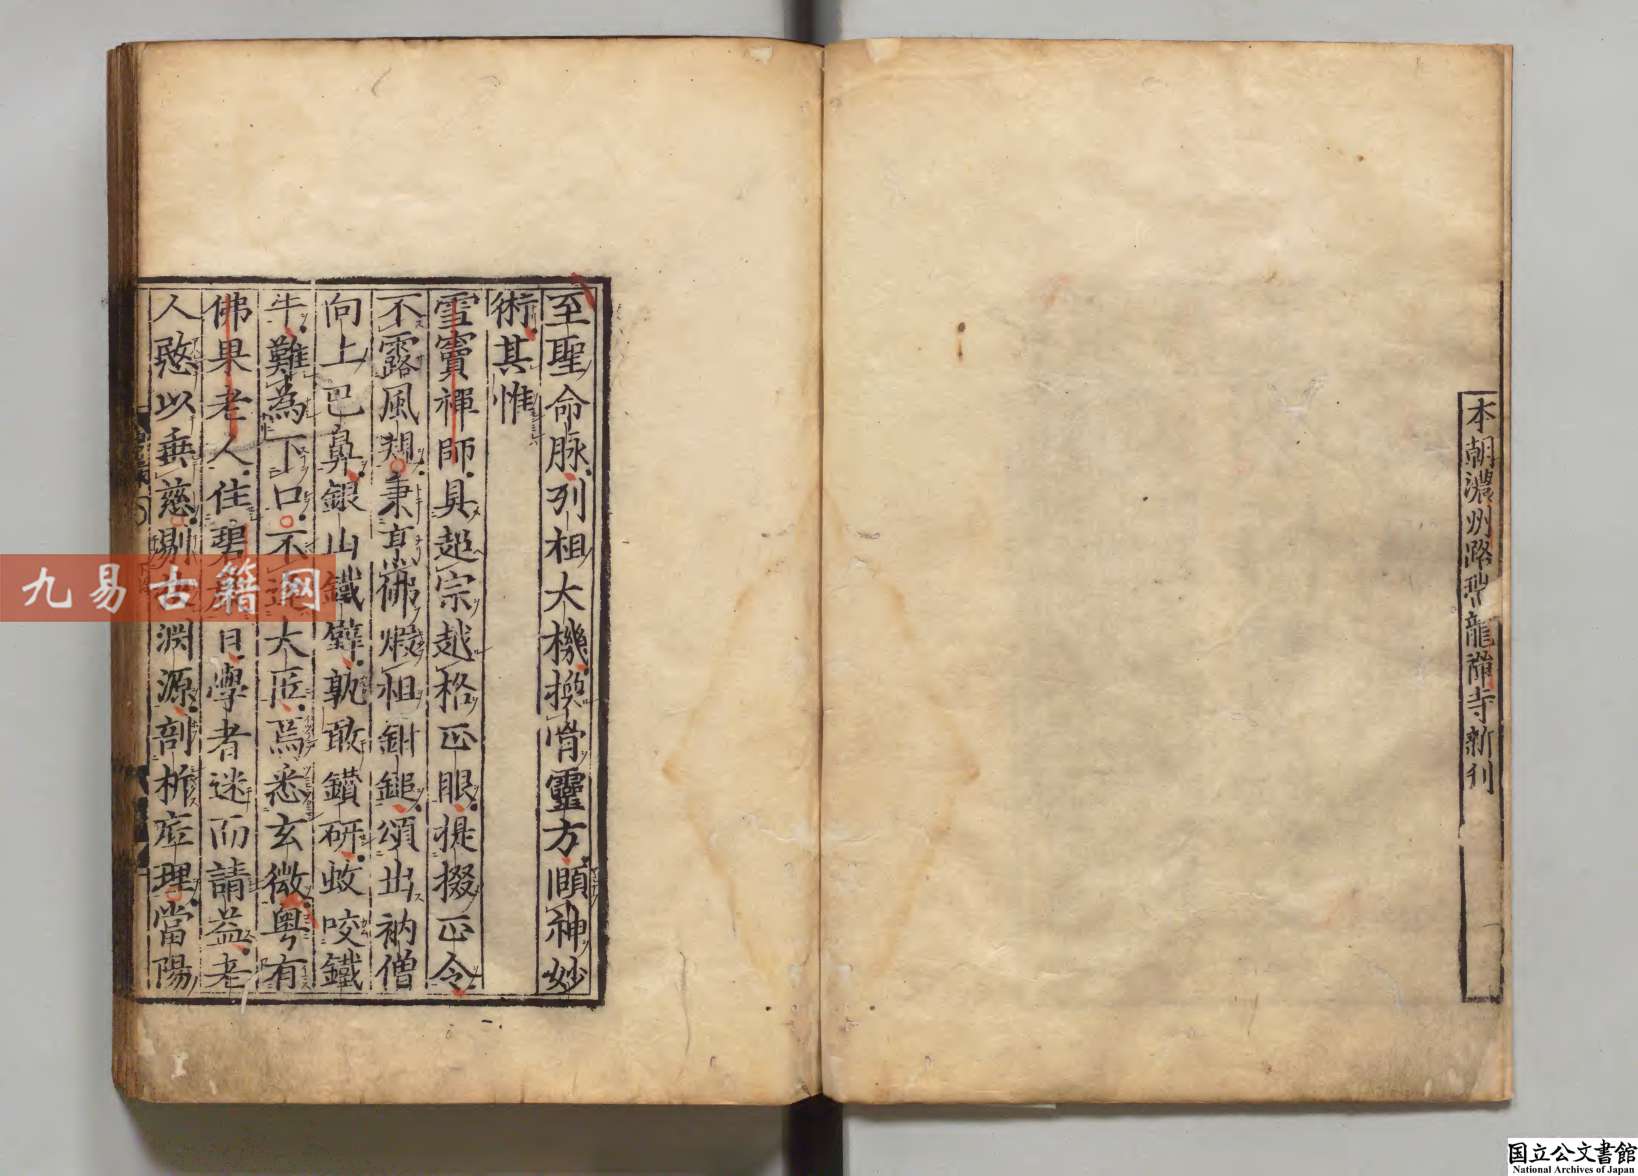 本朝濃州路瑞龍禪寺新刊
至聖命脉列祖大機換骨靈方頤神妙
術其惟
雪竇禪師具超宗越格正眼提掇正令
不露風規秉烹佛煅祖鉗鎚頌出衲僧
向上巴鼻銀山鐵壁孰敢鑽研蚊咬鐵
牛難為下口不逢大匠焉悉玄微粤有
佛果老人住碧巖日學者迷而請益老
人愍以垂慈剔淵源剖析底理當陽
九易古籍网
国立公文書館
National Archives of Japan